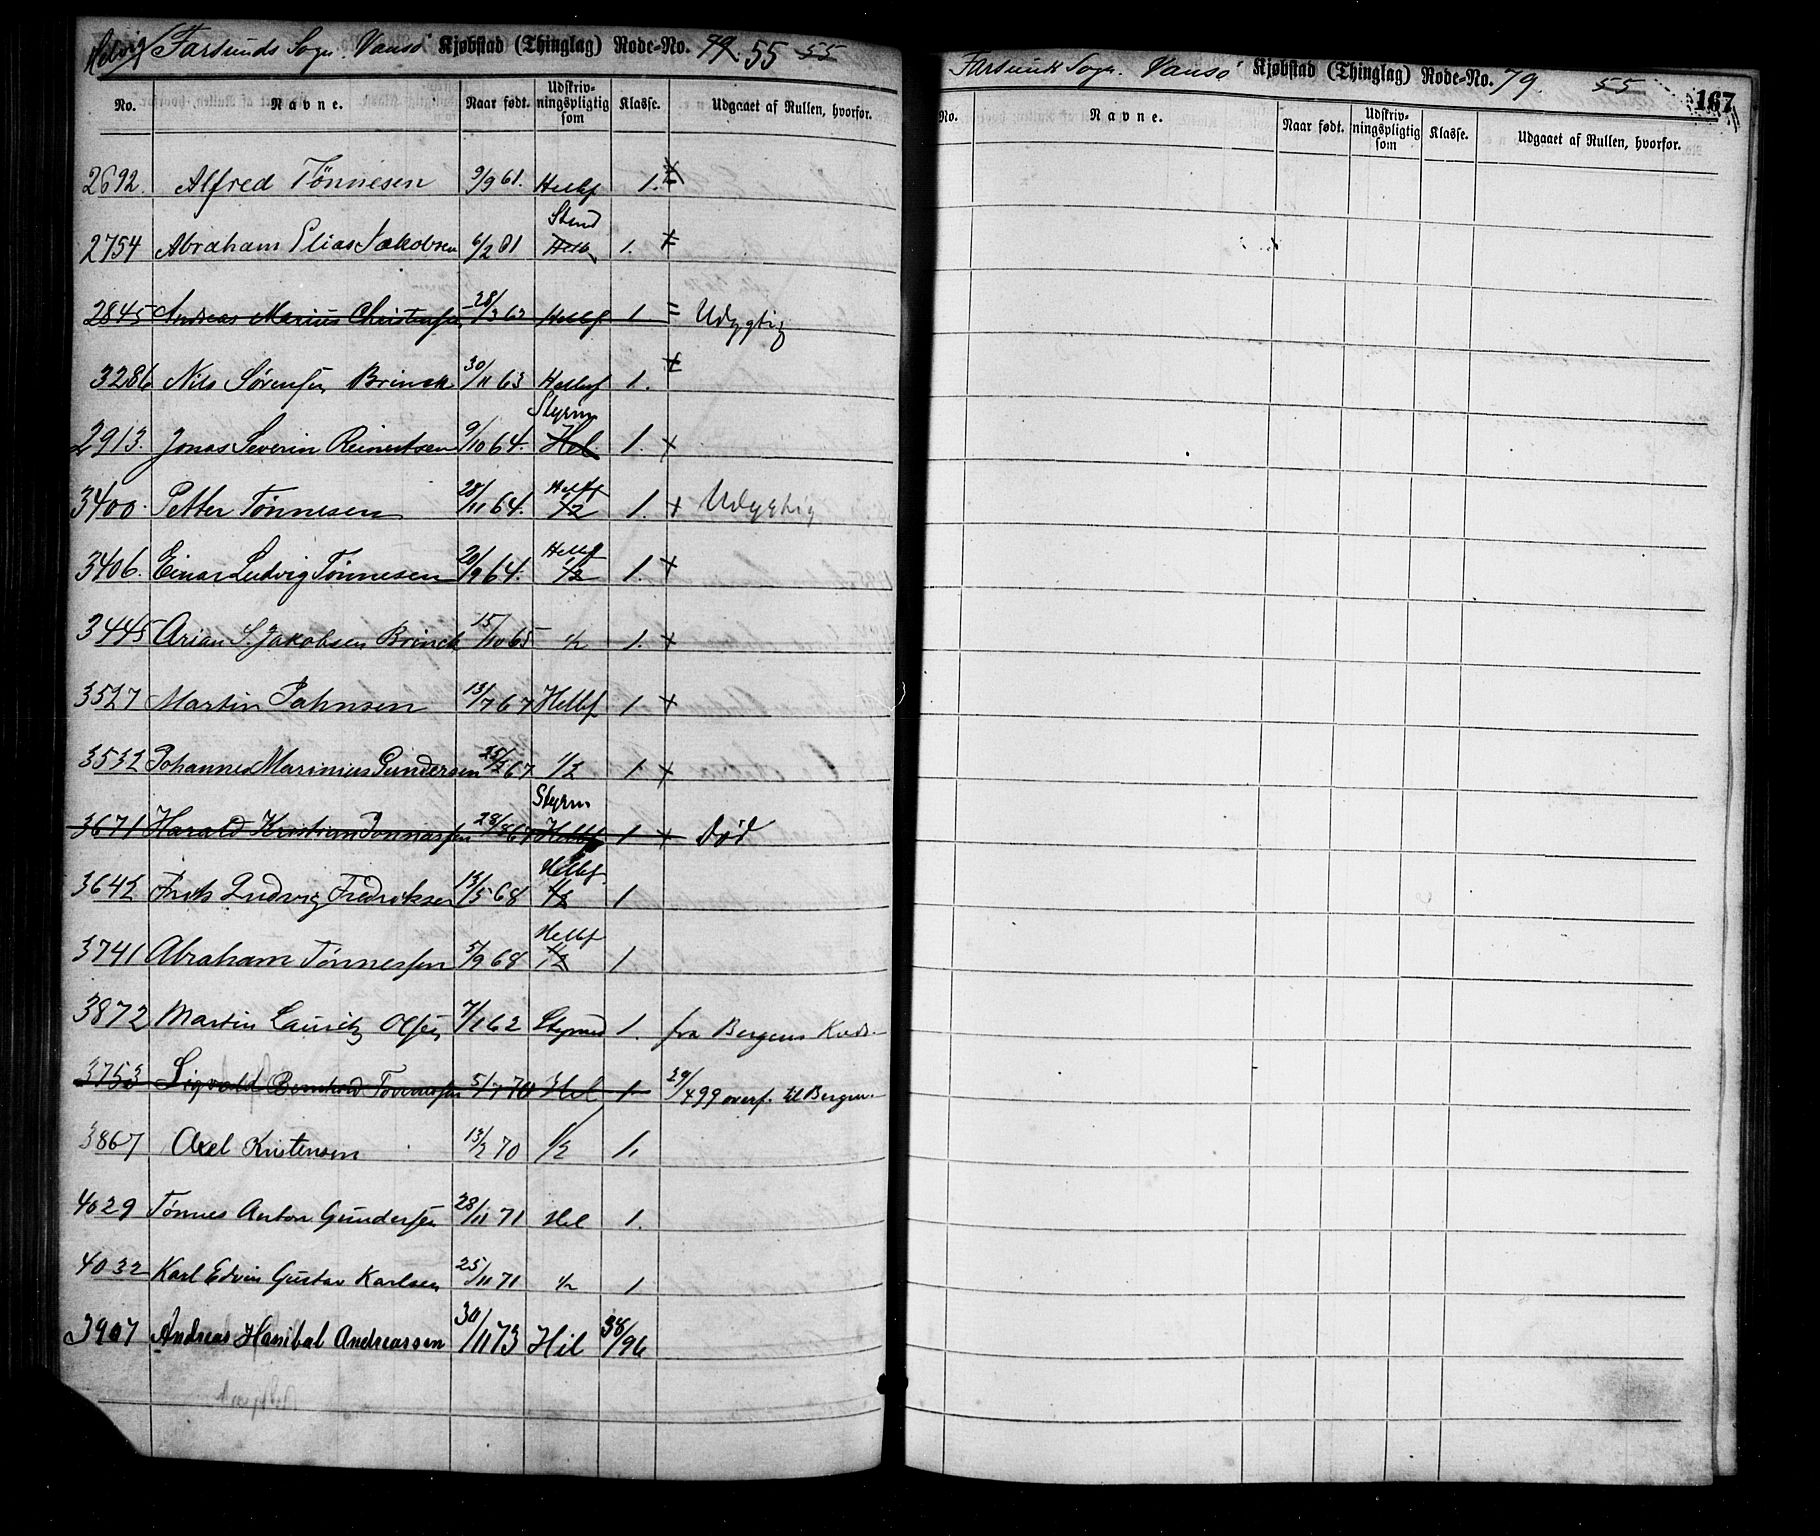 Farsunds Sogn. Vansø Kjøbstad (Thinglag) Rode-No. 79. 55 55
No. Navne. Naar født. Udskrivningspligtig som Klasse. Udgaaet af Rullen, hvorfor.
2692. Alfred Tønnesen 9/9 61. Helbf 1.
2754 Abraham Elias Jakobsen 6/2 61 Stmd Helb 1.
2845 Andreas Marius Christensen 28/3 63 Helbf 1 = Udygtig
3286 Nils Sørensen Brinck 30/11 63 Helbef 1.
2913. Jonas Severin Reinertsen 9/10 64. Styrm Hel 1. +
3400. Petter Tønnesen 28/11 64. Helbf 1/2 1. + Udygtig
3406. Einar Ludvig Tønnesen 20/9 64. Helbf 1/2 1. +
3445 Arian S. Jakobsen Brinck 15/10 65 1/2 1. +
3527 Martin Jahnsen 13/7 67 Helbf 1 +
3532 Johannes Marinius Gundersen 25/2 67 1/2 1 +
3671 Harald Kristian Tønnessen 28/8 67 Styrm Helbf 1 + Død
3642 Ludvig Fredriksen 13/5 68 Helbf 1/2 1
3741 Abraham Tønnessen 5/9 68 Helbf 1/2 1
3872 Martin Lauritz Olsen 7/1 62 Styrmd 1. fra Bergens Kreds
3753 Sigvald Bernhard Tønnessen 5/7 70 Hel 1 29/4 99 overf. til Bergen.
3867 Axel Kristensen 13/2 70 1/2 1.
4029 Tønnes Anton Gundersen 28/11 71 Hel 1.
4032 Karl Edvin Gustav Karlsen 25/11 71 1/2 1
3907 Andreas Hanibal Andreassen 30/11 73 Hel 38/96
Farsunds Sogn. Vansø Kjøbstad (Thinglag) Rode-No. 79. 55 167
No. Navne. Naar født. Udskrivningspligtig som Klasse. Udgaaet af Rullen, hvorfor.